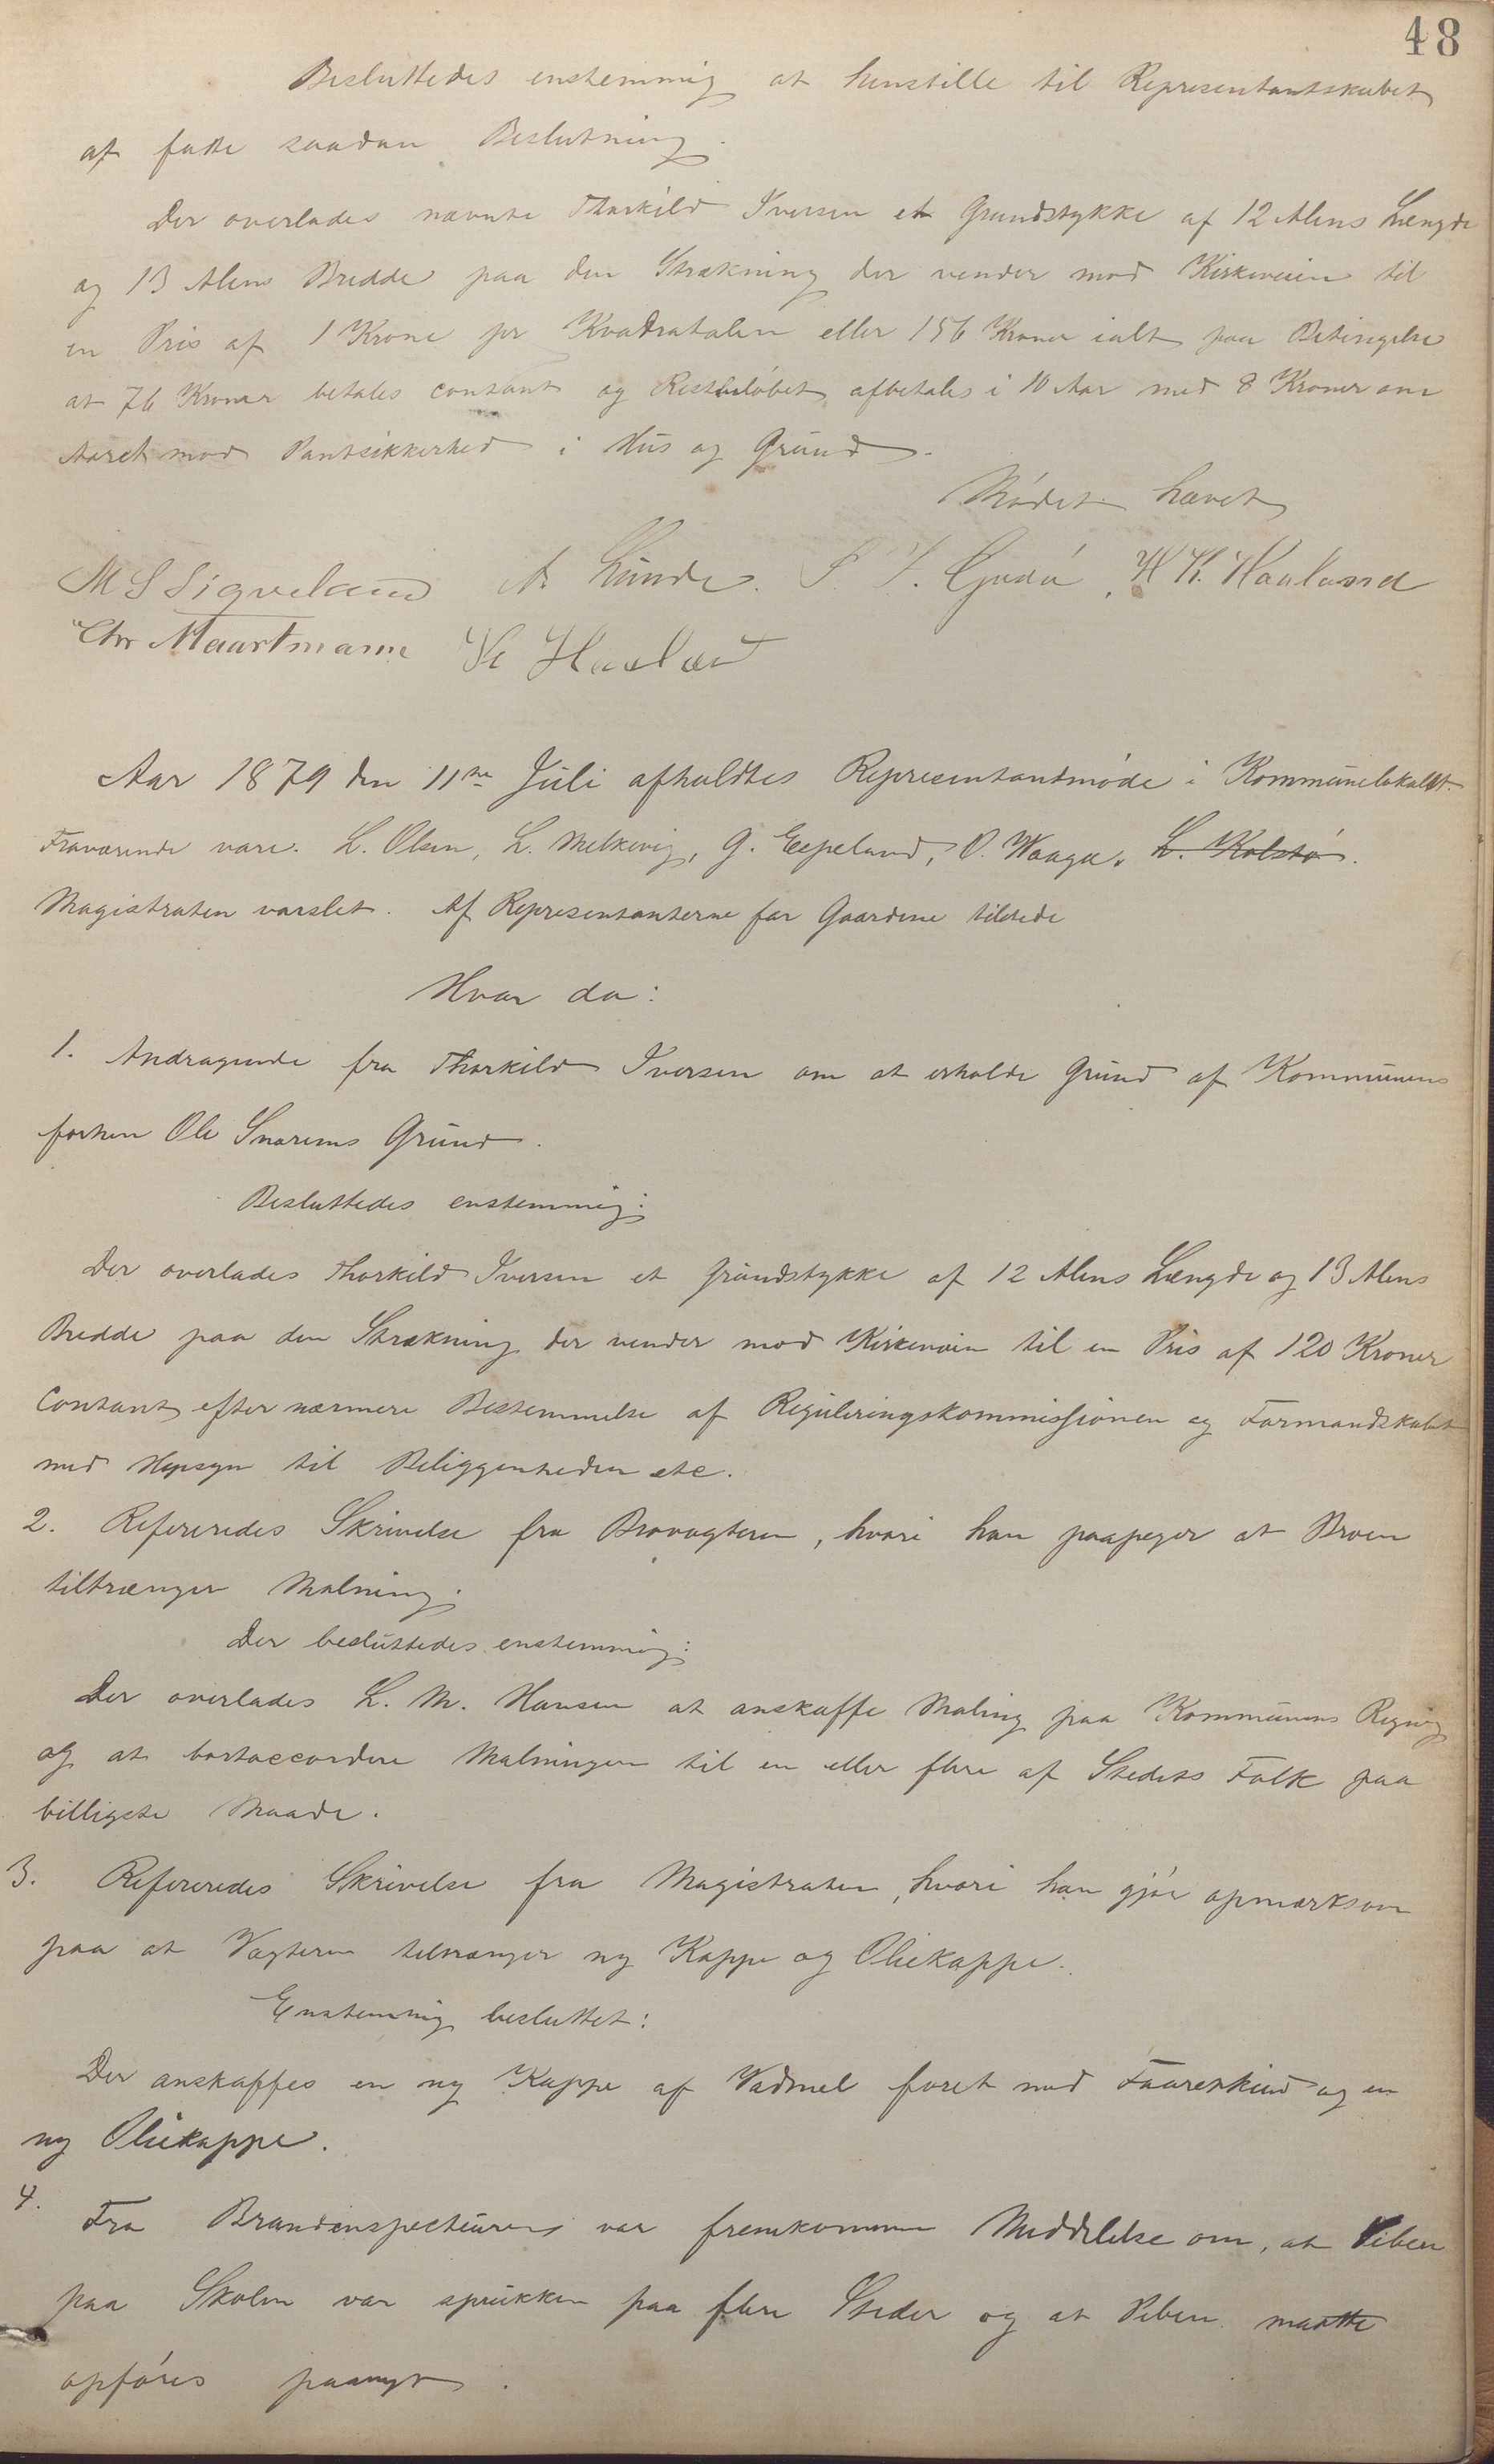 48
Besluttedes enstemmig at henstille til Representantskabet
at fatte saadan Beslutning.
Der overlades nævnte Thorkild Iversen et Grundstykke af 12 Alens Længde
og 13 Alens Bredde paa den Strækning der vender mod Kirkeveien til
en Pris af 1 Krone pr Kvadratalen eller 156 Kroner ialt paa Betingelse
at 76 Kroner betales contant og Restbeløbet afbetales i 10 Aar med 8 Kroner om
Aaret mod Pantsikkerhed i Hus og Grund.
Mødet hævet
M S Sigveland A. Lunde. H K. Haaland
Chr Maartmann
Aar 1879 den 11te Juli afholdtes Representantmøde i Kommunelokalet.
Fraværende vare. L. Olsen, L. Melkevig, G. Eepeland, O. Waage, L. Kolstø.
Magistraten varslet. Af Representanterne for Gaardene tilstede
Hvor da:
1. Andragende fra Thorkild Iversen om at erholde Grund af Kommunens
forhen Ole Snorems Grund.
Besluttedes enstemmig:
Der overlades Thorkild Iversen et Grundstykke af 12 Alens Længde og 13 Alens
Bredde paa den Strækning der vender mod Kirkeveien til en Pris af 120 Kroner
Contant efter nærmere Bestemmelse af Reguleringskommissionen og Formandskabet
med Hensyn til Beliggenheden etc.
2. Refereredes Skrivelse fra Brovagteren, hvori han paapeger at Broen
tiltrænger Malning.
Der besluttedes enstemmig:
Der overlades L. M. Hansen at anskaffe Maling paa Kommunens Regning
og at bortaccordere Malningen til en eller flere af Stedets Folk paa
billigste Maade.
3. Refereredes Skrivelse fra Magistraten, hvori han gjør opmærksom
paa at Vægteren tiltrænger ny Kappe og Oliekappe.
Enstemmig besluttet:
Der anskaffes en ny Kappe af Vadmel foret med Faareskind og en
ny Oliekappe.
4. Fra Brandinspecteuren var fremkommen Meddelelse om, at Piben
paa Skolen var sprukken paa flere Steder og at Piben maatte
opføres paanyt.